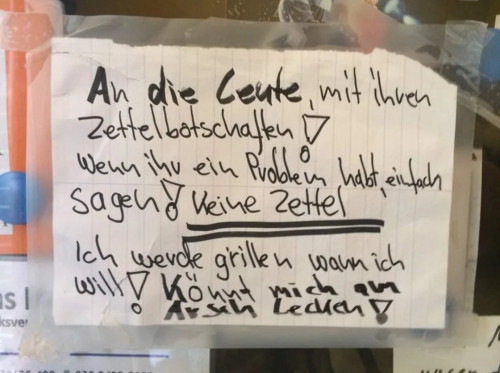 An die Leute, mit ihren
Zettelbotschaften!
Wenn ihr ein Problem habt, einfach
sagen! Keine Zettel
Ich werde grillen wann ich
will! Könnt mich am
Arsch Lecken!